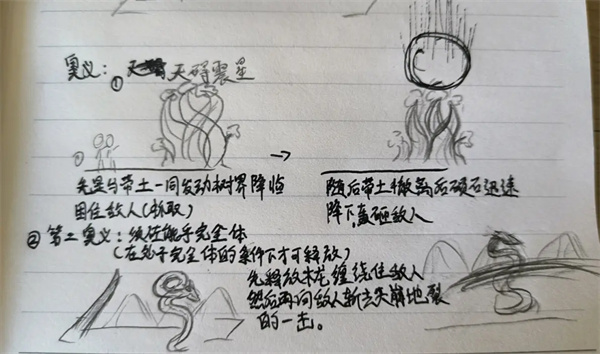 奥义：
① 天碍震星
①
先是与带土一同发动树界降临
困住敌人（抓取）
随后带土撤离后硕石迅速
降下，直砸敌人
② 第二奥义：须佐能乎完全体
（在 完全体的条件下才可释放）
先释放木龙缠绕住敌人
然后再向敌人斩去天崩地裂
的一击。